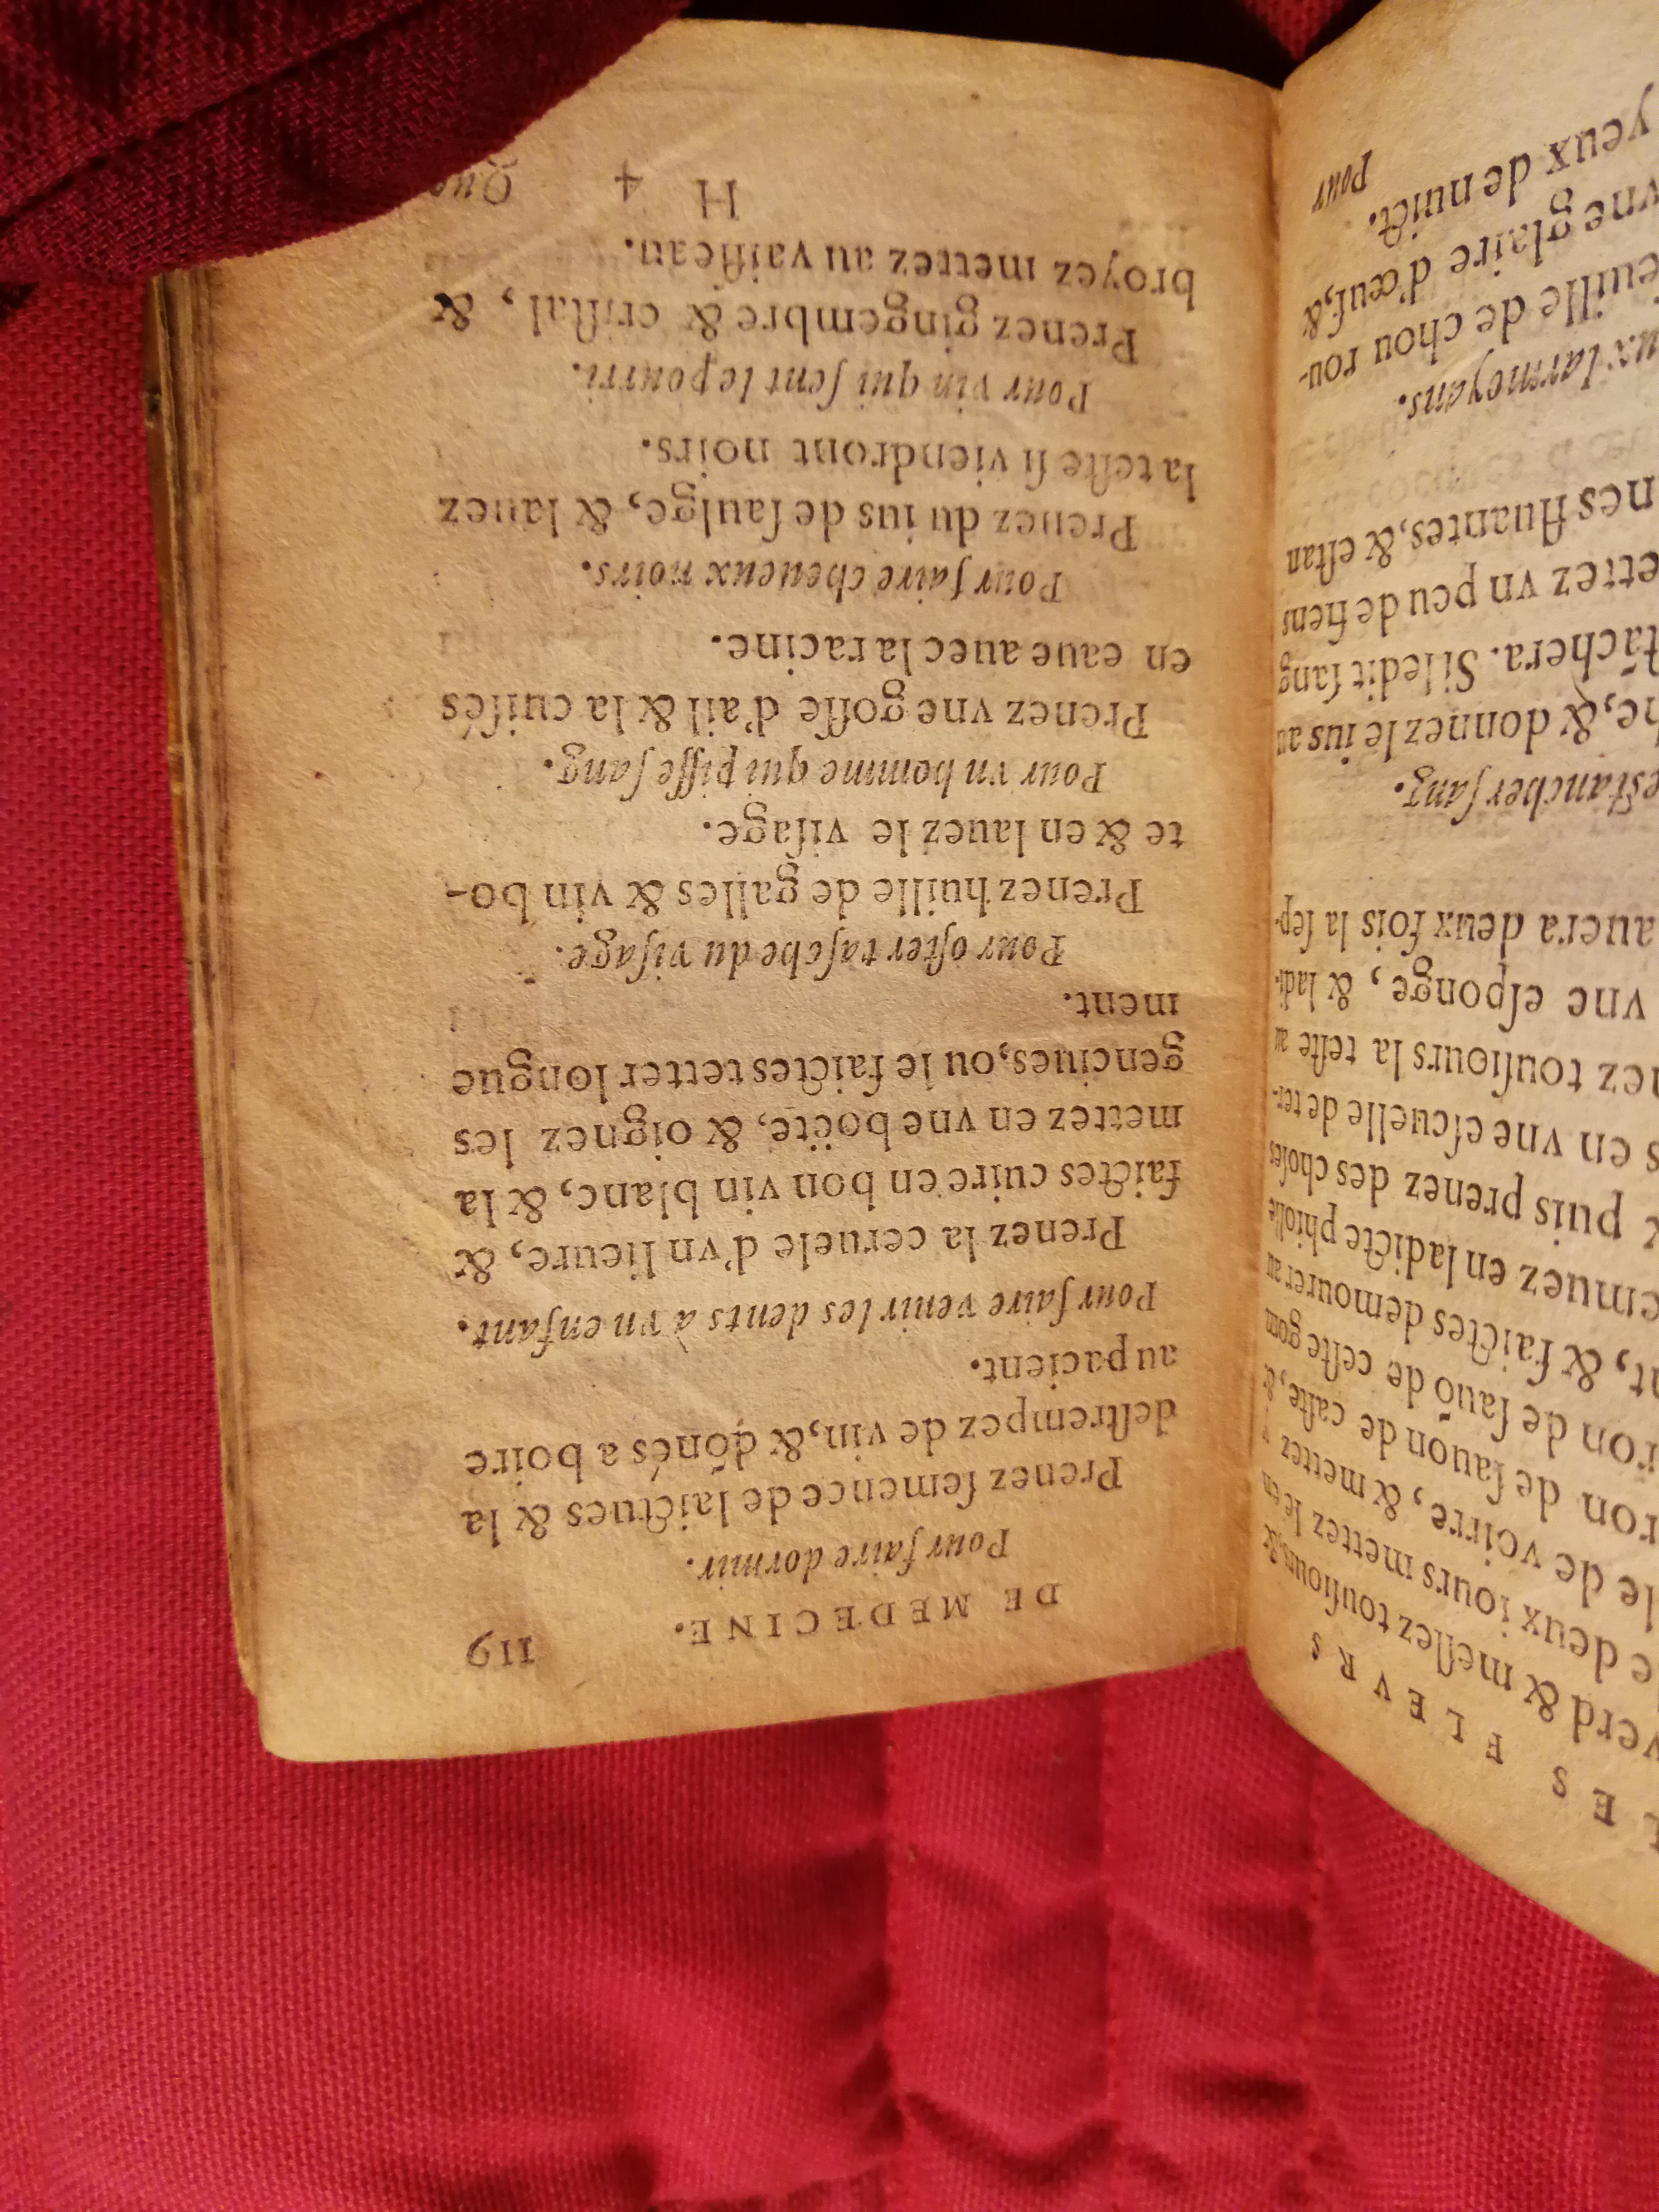 ES FLEVRS
verd & meſlez touſiours, &
deux iours mettez le en
le de voirre, & mettez y
ron de ſauon de caſte, &
ron de ſauō de ceſte gom
nt, & faictes demourer au
emuez en ladicte phiolle
& puis prenez des choſes
s en vne eſcuelle de ter-
nez touſiours la teſte au
vne eſponge, & ladi-
auera deux fois la ſep-
eſtancher ſang.
he, & donnez le ius au
tāchera. Si ledit ſang
ettez vn peu de fiens
nes fluantes, & eſtan
ux larmoyans.
euille de chou rou-
vne glaire d'œuf, &
yeux de nuict.
Pour
DE MEDECINE. 119
Pour faire dormir.
Prenez ſemence de laictues & la
deſtrempez de vin, & dōnés a boire
au pacient.
Pour faire venir les dents à vn enfant.
Prenez la ceruele d'vn lieure, &
faictes cuire en bon vin blanc, & la
mettez en vne boëte, & oignez les
genciues, ou le faictes tetter longue
ment.
Pour oſter taſche du viſage.
Prenez huille de galles & vin bo-
te & en lauez le viſage.
Pour vn homme qui piſſe ſang.
Prenez vne goſſe d'ail & la cuiſés
en eaue auec la racine.
Pour faire cheueux noirs.
Prenez du ius de ſaulge, & lauez
la teſte ſi viendront noirs.
Pour vin qui ſent le pourri.
Prenez gingembre & criſtal, &
broyez mettez au vaiſſeau.
H 4 Que